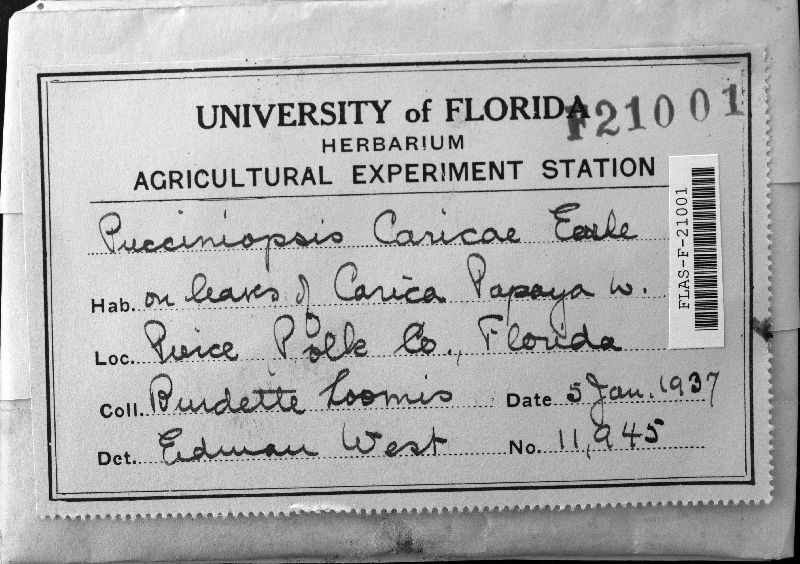 UNIVERSITY of FLORIDA
F21001
HERBARIUM
AGRICULTURAL EXPERIMENT STATION
Pucciniopsis Caricae Earle
Hab. on leaves of Carica Papaya W.
Loc. Pierce Polk Co., Florida
Coll. Burdette Loomis Date 5 Jan. 1937
Det. Erdman West No. 11,945
FLAS-F-21001